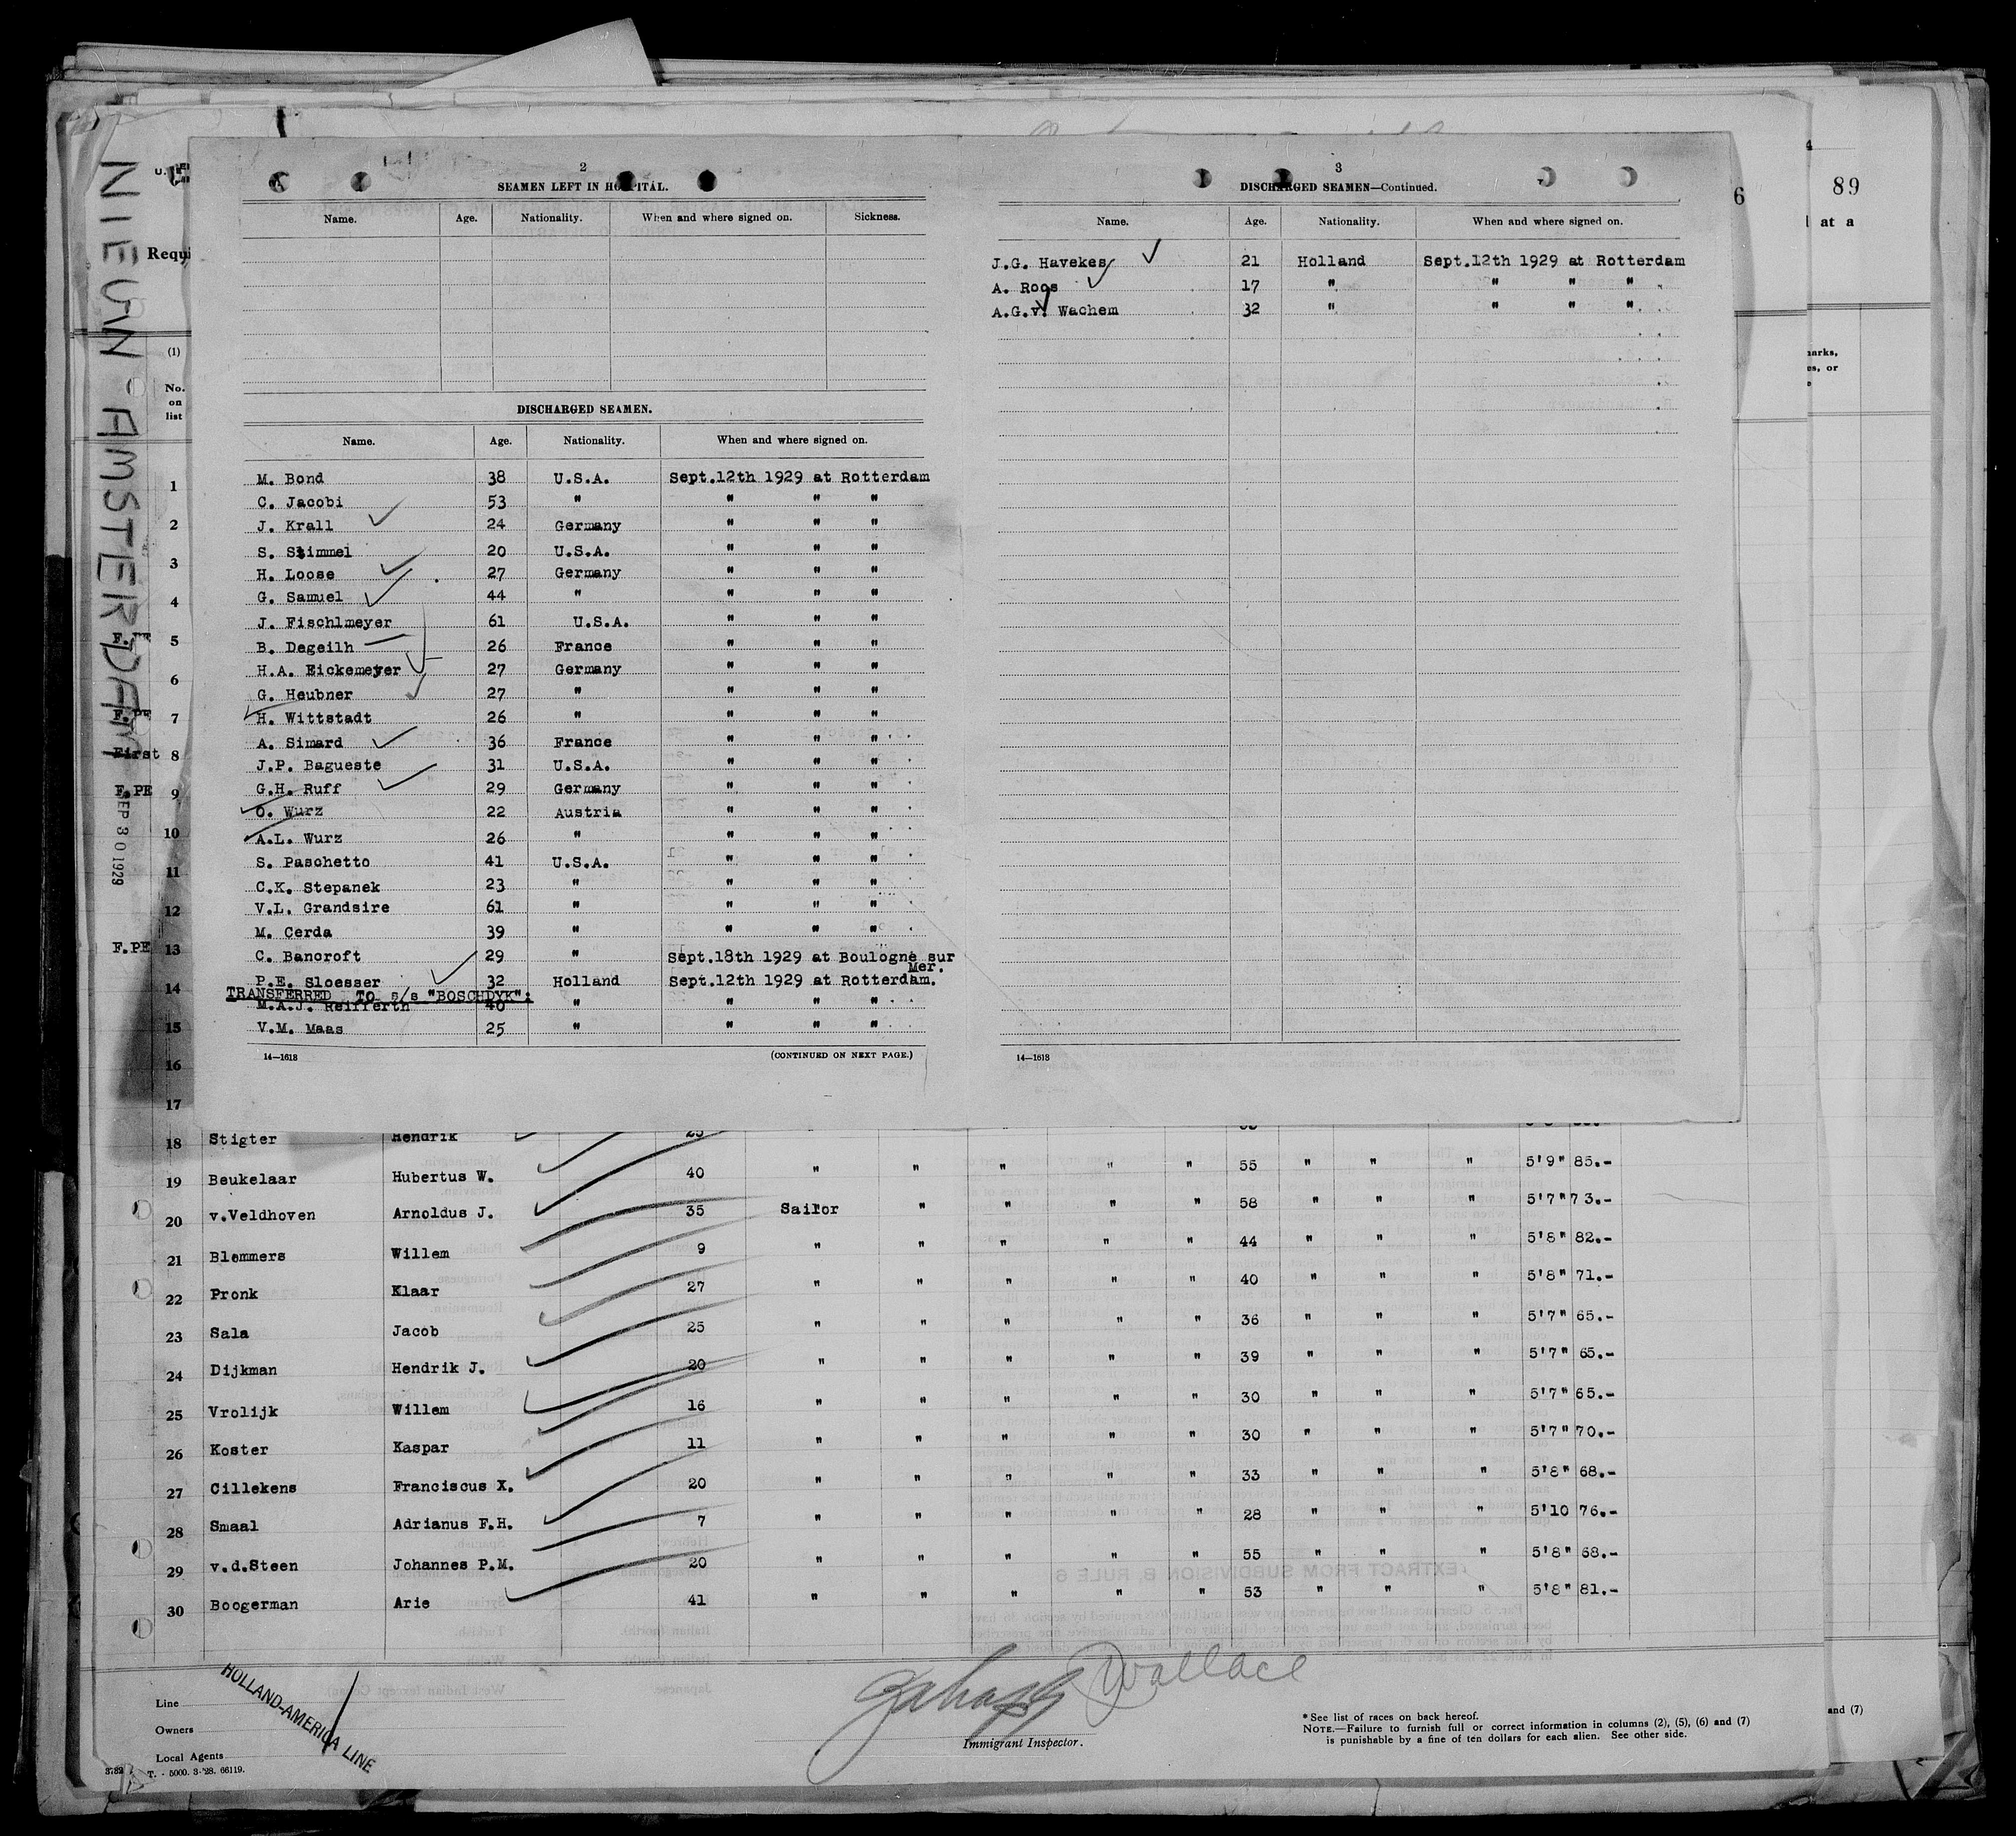 NIEUW AMSTERDAM
SEP 30 1929
Requi
(1)
No.
on
list
2
SEAMEN LEFT IN HOSPITAL.
Name. Age. Nationality. When and where signed on. Sickness.
DISCHARGED SEAMEN.
Name. Age. Nationality. When and where signed on.
M. Bond 38 U.S.A. Sept.12th 1929 at Rotterdam
C. Jacobi 53 " " " "
J. Krall 24 Germany " " "
S. Stimmel 20 U.S.A. " " "
H. Loose 27 Germany " " "
G. Samuel 44 " " " "
J. Fischlmeyer 61 U.S.A. " " "
B. Degeilh 26 France " " "
H.A. Eickemeyer 27 Germany " " "
G. Heubner 27 " " " "
H. Wittstadt 26 " " " "
A. Simard 36 France " " "
J.P. Bagueste 31 U.S.A. " " "
G.H. Ruff 29 Germany " " "
O. Wurz 22 Austria " " "
A.L. Wurz 26 " " " "
S. Paschetto 41 U.S.A. " " "
C.K. Stepanek 23 " " " "
V.L. Grandsire 61 " " " "
M. Cerda 39 " " " "
C. Bancroft 29 " Sept.18th 1929 at Boulogne sur
Mer.
P.E. Sloesser 32 Holland Sept.12th 1929 at Rotterdam.
TRANSFERRED TO s/s "BOSCHDYK":
M.A.J. Reifferth 40 " " " "
V.M. Maas 25 " " " "
14—1618 (CONTINUED ON NEXT PAGE.)
3
DISCHARGED SEAMEN—Continued.
Name. Age. Nationality. When and where signed on.
J.G. Havekes 21 Holland Sept.12th 1929 at Rotterdam
A. Roos 17 " " " "
A.G.v. Wachem 32 " " " "
14—1618
6
4
89
at a
marks,
es, or
1
2
3
4
F.PE 5
6
F.PE 7
First 8
F.PE 9
10
11
12
F.PE 13
14
15
16
17
18 Stigter Hendrik 25
19 Beukelaar Hubertus W. 40 " " " " " 55 " " " 5'9" 85.-
20 v.Veldhoven Arnoldus J. 35 Sailor " " " " 58 " " " 5'7" 73.-
21 Blommers Willem 9 " " " " " 44 " " " 5'8" 82.-
22 Pronk Klaar 27 " " " " " 40 " " " 5'8" 71.-
23 Sala Jacob 25 " " " " " 36 " " " 5'7" 65.-
24 Dijkman Hendrik J. 20 " " " " " 39 " " " 5'7" 65.-
25 Vrolijk Willem 16 " " " " " 30 " " " 5'7" 65.-
26 Koster Kaspar 11 " " " " " 30 " " " 5'7" 70.-
27 Cillekens Franciscus X. 20 " " " " " 33 " " " 5'8" 68.-
28 Smaal Adrianus F.H. 7 " " " " " 28 " " " 5'10 76.-
29 v.d.Steen Johannes P.M. 20 " " " " " 55 " " " 5'8" 68.-
30 Boogerman Arie 41 " " " " " 53 " " " 5'8" 81.-
Line
Owners
Local Agents
HOLLAND-AMERICA LINE
T. - 5000. 3-'28. 66119.
Wallace
Immigrant Inspector.
* See list of races on back hereof.
NOTE.—Failure to furnish full or correct information in columns (2), (5), (6) and (7)
is punishable by a fine of ten dollars for each alien. See other side.
and (7)